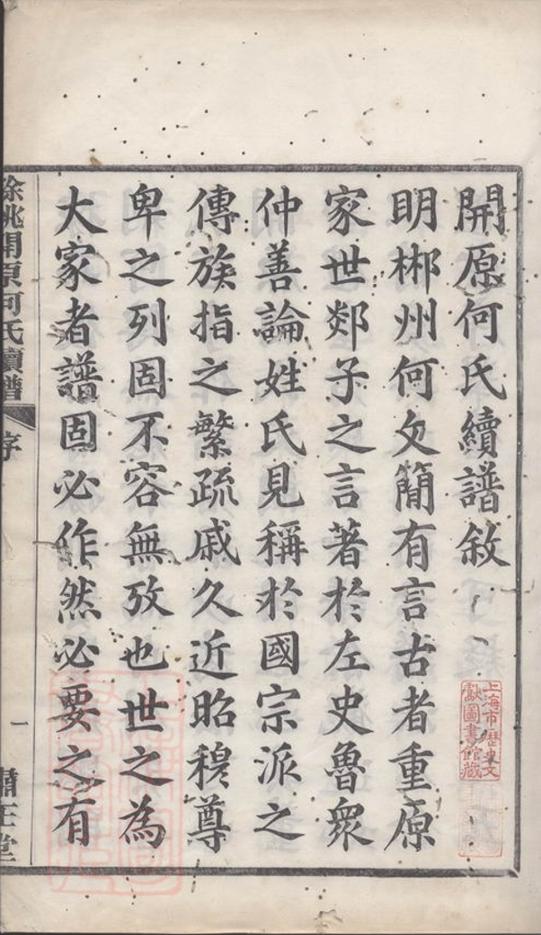 開原何氏續譜敘
明郴州何文簡有言古者重原
家世郯子之言著於左史魯衆
仲善論姓氏見稱於國宗派之
傳族指之繁疏戚久近昭穆尊
卑之列固不容無攷也世之為
大家者譜固必作然必要之有
餘姚開原何氏續譜
序
一
上海市歷史文
獻圖書館藏